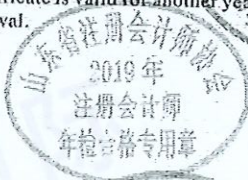 rtificate is valid for another yea
val.
山东省注册会计师协会
2019年
注册会计师
年检合格专用章